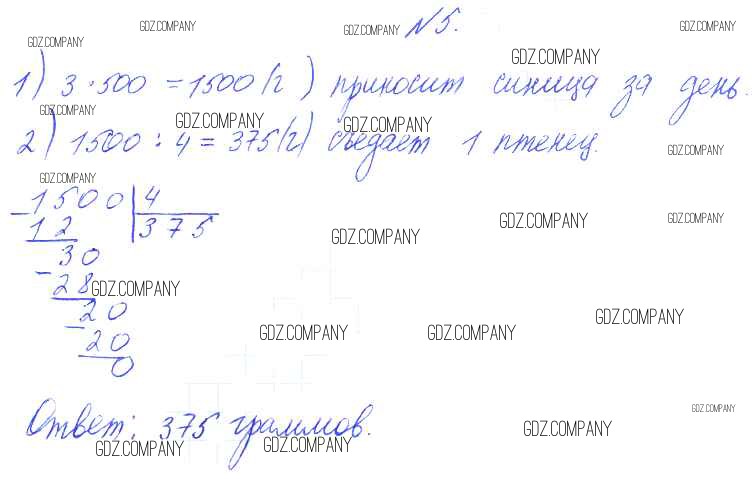 GDZ.COMPANY
GDZ.COMPANY
GDZ.COMPANY
№5.
GDZ.COMPANY
GDZ.COMPANY
1) 3 · 500 = 1500 (г) приносит синица за день.
GDZ.COMPANY
GDZ.COMPANY
GDZ.COMPANY
2) 1500 : 4 = 375 (г) съедает 1 птенец.
GDZ.COMPANY
GDZ.COMPANY
- 1500 | 4
12 375
GDZ.COMPANY
GDZ.COMPANY
GDZ.COMPANY
30
- 28
GDZ.COMPANY
20
- 20
GDZ.COMPANY
GDZ.COMPANY
GDZ.COMPANY
0
GDZ.COMPANY
Ответ: 375 граммов.
GDZ.COMPANY
GDZ.COMPANY
GDZ.COMPANY